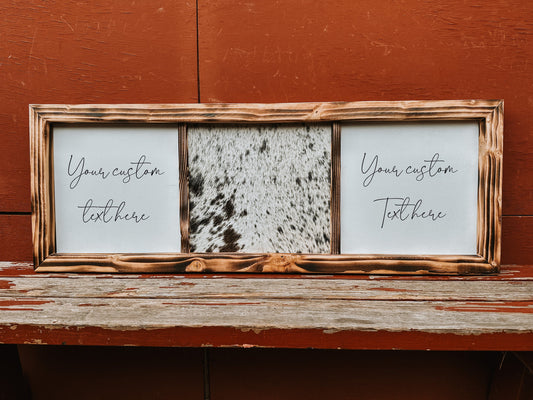 Your custom
text here
Your custom
Text here